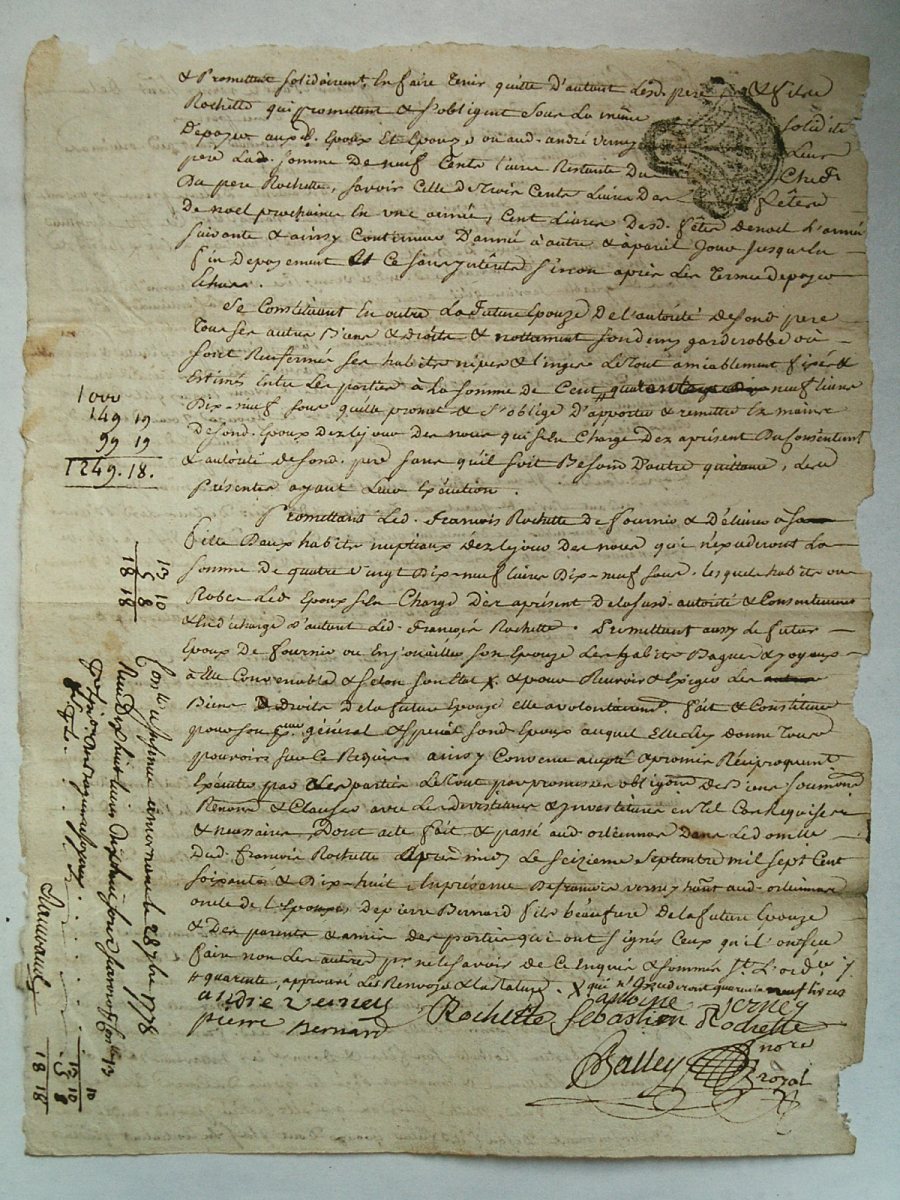 & Promettent solidairem.t En faire tenir quitte d'autant lesd. pere & fils
Rochette qui promettent & s'obligent sous la même solidité
De payer auxd. Epoux Et Epouze ou aud. andré verney leur
pere Lad. somme De neuf Cents livres Restante Du Chef
Du pere Rochette, savoir Celle de trois Cents Livres Dans fêtes
De noel prochaines En une année, Cent Livres Desd. fêtes De noel L'année
suivante & ainsy Continuer D'année à autre & apareil Jour Jusqu'a la
fin De payement Et Ce sans jnterêts sinon après Les Termes De payer
Echus.
Se Constituant En outre La future Epouze De l'autorité De sond. pere
Tous ses autres Biens & Droits & nottament garderobbe où
sont Renfermés ses habits nipes & linges Le Tout amiablement fixé &
Estimé Entre Les parties à la somme de Cent neuf livres
Dix-neuf sous qu'elle promet & s'oblige D'apporter & remettre En mains
De sond. Epoux Dez le jour Des noces qui s'En Charge Dez aprésent Du Consentement
& autorité De sond. pere sans qu'il soit Besoin D'autre quittance, Les
Présentes ayant Leur Exécution.
Promettant Led. François Rochette De fournir & Délivrer à sa
fille Deux habits nuptiaux Dez le jour Des noces qui n'Excederont La
somme De quatre vingt Dix-neuf livres Dix-neuf sous. lesquels habits ou
Robes Led. Epoux s'En Charge Dèz aprésent De la susd. autorité & Consentement
& En décharge d'autant Led. François Rochette. Promettant aussy Le futur
Epoux De fournir ou Enjoailler son Epouze Des habits Bagues & joyaux
à Elle Convenables & selon son Etat X & pour Recevoir & Exiger Les
Biens & Droits de la future Epouze elle a volontairem.t fait & Constitué
pour son général & spécial sond. Epoux auquel Elle Donne Tous
pouvoirs sur ce Requis ainsy Convenu accepté & promis Réciproquem.t
Exécuter par Les parties Le Tout par promesses obligaons Des biens soumons
Renons & Clauses avec Les devestitures & jnvestitures En Tel Cas Requises
& necessaires, Dont acte fait & passé aud. orlienas Dans Le domicile
Dud. François Rochette après midy Le seizieme septembre mil sept Cent
soixante & Dix-huit, En présence De françois verney habitt aud. orlienas
oncle de l'Epoux, De pierre Bernard fils beaufrere De la future Epouze
& Des parents & amis Des parties qui ont signés Ceux qu'il ont sceu
faire non Les autres pr ne le savoir De Ce Enquis & sommés st L'ord.ce
# quarante, approuvé Les Renvoys & La Rature. X qui n'Excederont quarante neuf livres
andré verney Rochette antoine Verney
pierre Bernard Sebastien Rochette
Balley Nore Royal
1000
149 19
99 19
1249. 18.
13 10
5 8
18 18
Conlé & Insinué à mornant le 28 7bre 1778
Reçu Dix huit livres Dix huit sous
Sauvade
13 10
5 8
18 18